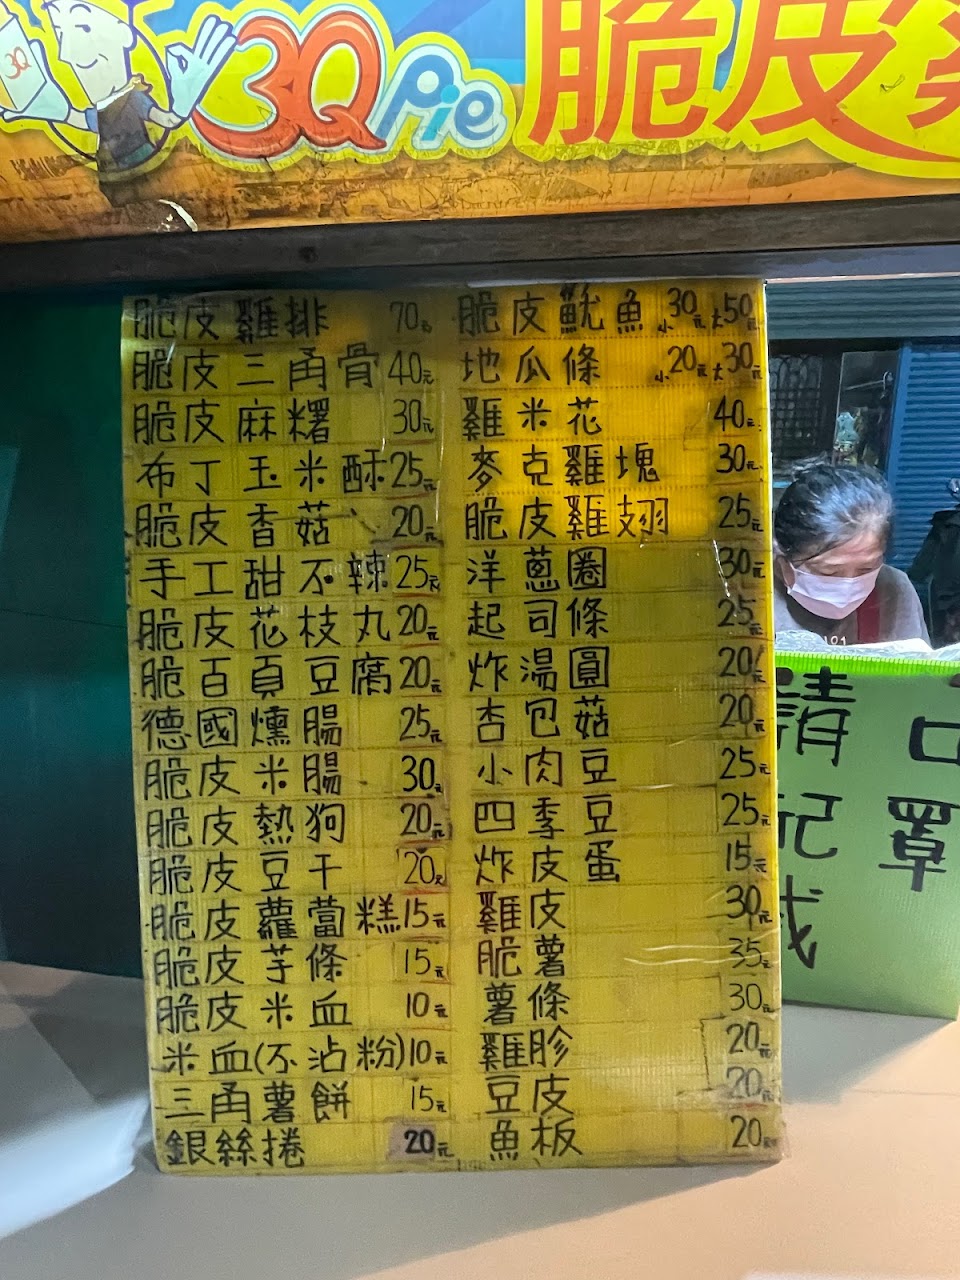 3Q Pie 脆皮
3Q
脆皮雞排 70元
脆皮三角骨 40元
脆皮麻糬 30元
布丁玉米酥 25元
脆皮香菇 20元
手工甜不辣 25元
脆皮花枝丸 20元
脆百頁豆腐 20元
德國燻腸 25元
脆皮米腸 30元
脆皮熱狗 20元
脆皮豆干 20元
脆皮蘿蔔糕 15元
脆皮芋條 15元
脆皮米血 10元
米血(不沾粉) 10元
三角薯餅 15元
銀絲捲 20元
脆皮魷魚 小30元 大50元
地瓜條 小20元 大30元
雞米花 40元
麥克雞塊 30元
脆皮雞翅 25元
洋蔥圈 30元
起司條 25元
炸湯圓 20元
杏包菇 20元
小肉豆 25元
四季豆 25元
炸皮蛋 15元
雞皮 30元
脆薯 35元
薯條 30元
雞胗 20元
豆皮 20元
魚板 20元
請
口罩